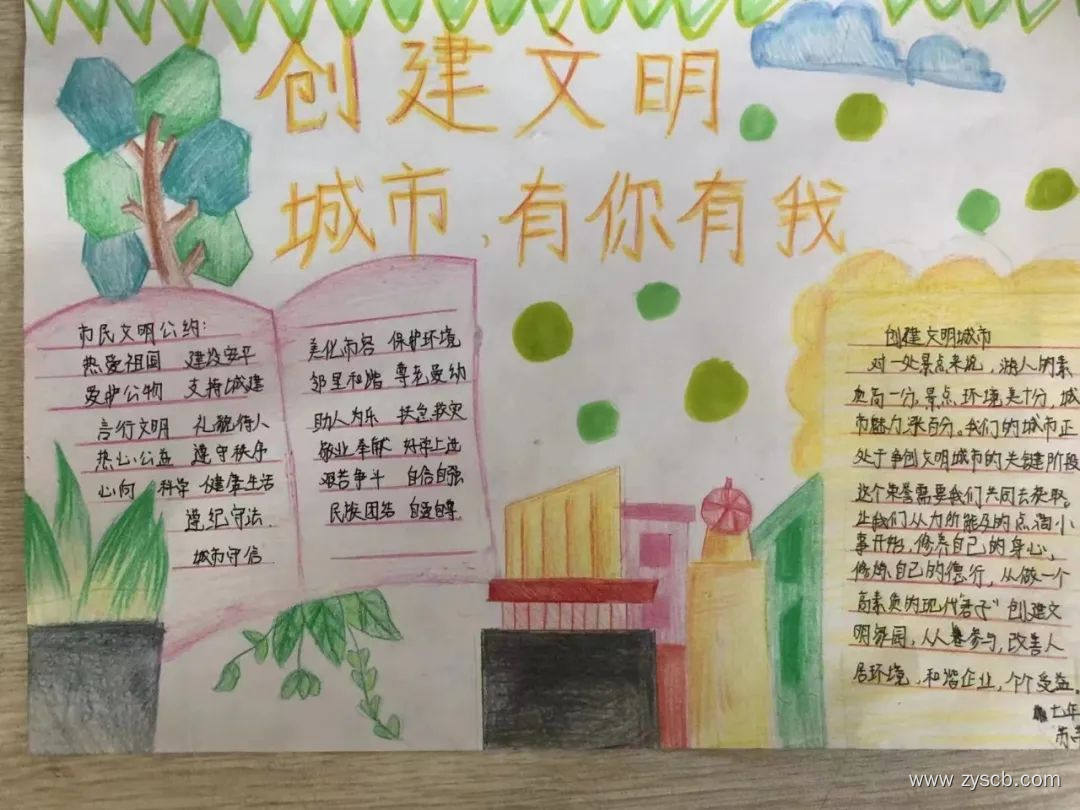 创建文明
城市,有你有我
市民文明公约:
热爱祖国 建设安平
爱护公物 支持城建
言行文明 礼貌待人
热心公益 遵守秩序
心向 科学 健康生活
遵纪守法.
城市守信
美化市容 保护环境
邻里和谐 尊老爱幼
助人为乐 扶危救灾
敬业奉献 好学上进
艰苦争斗 自信自强
民族团结 自爱自尊
创建文明城市
对一处景点来说,游人的素
质高一分,景点环境美十分,城
市魅力涨百分。我们的城市正
处于争创文明城市的关键阶段
这个荣誉需要我们共同去获取.
让我们从力所能及的点滴小
事开始,修养自己的身心,
修炼自己的德行,从做一个
高素质的现代"君子"创建文
明家园,人人参与,改善人
居环境,和谐企业,个个受益.
七年
www.zyscb.com